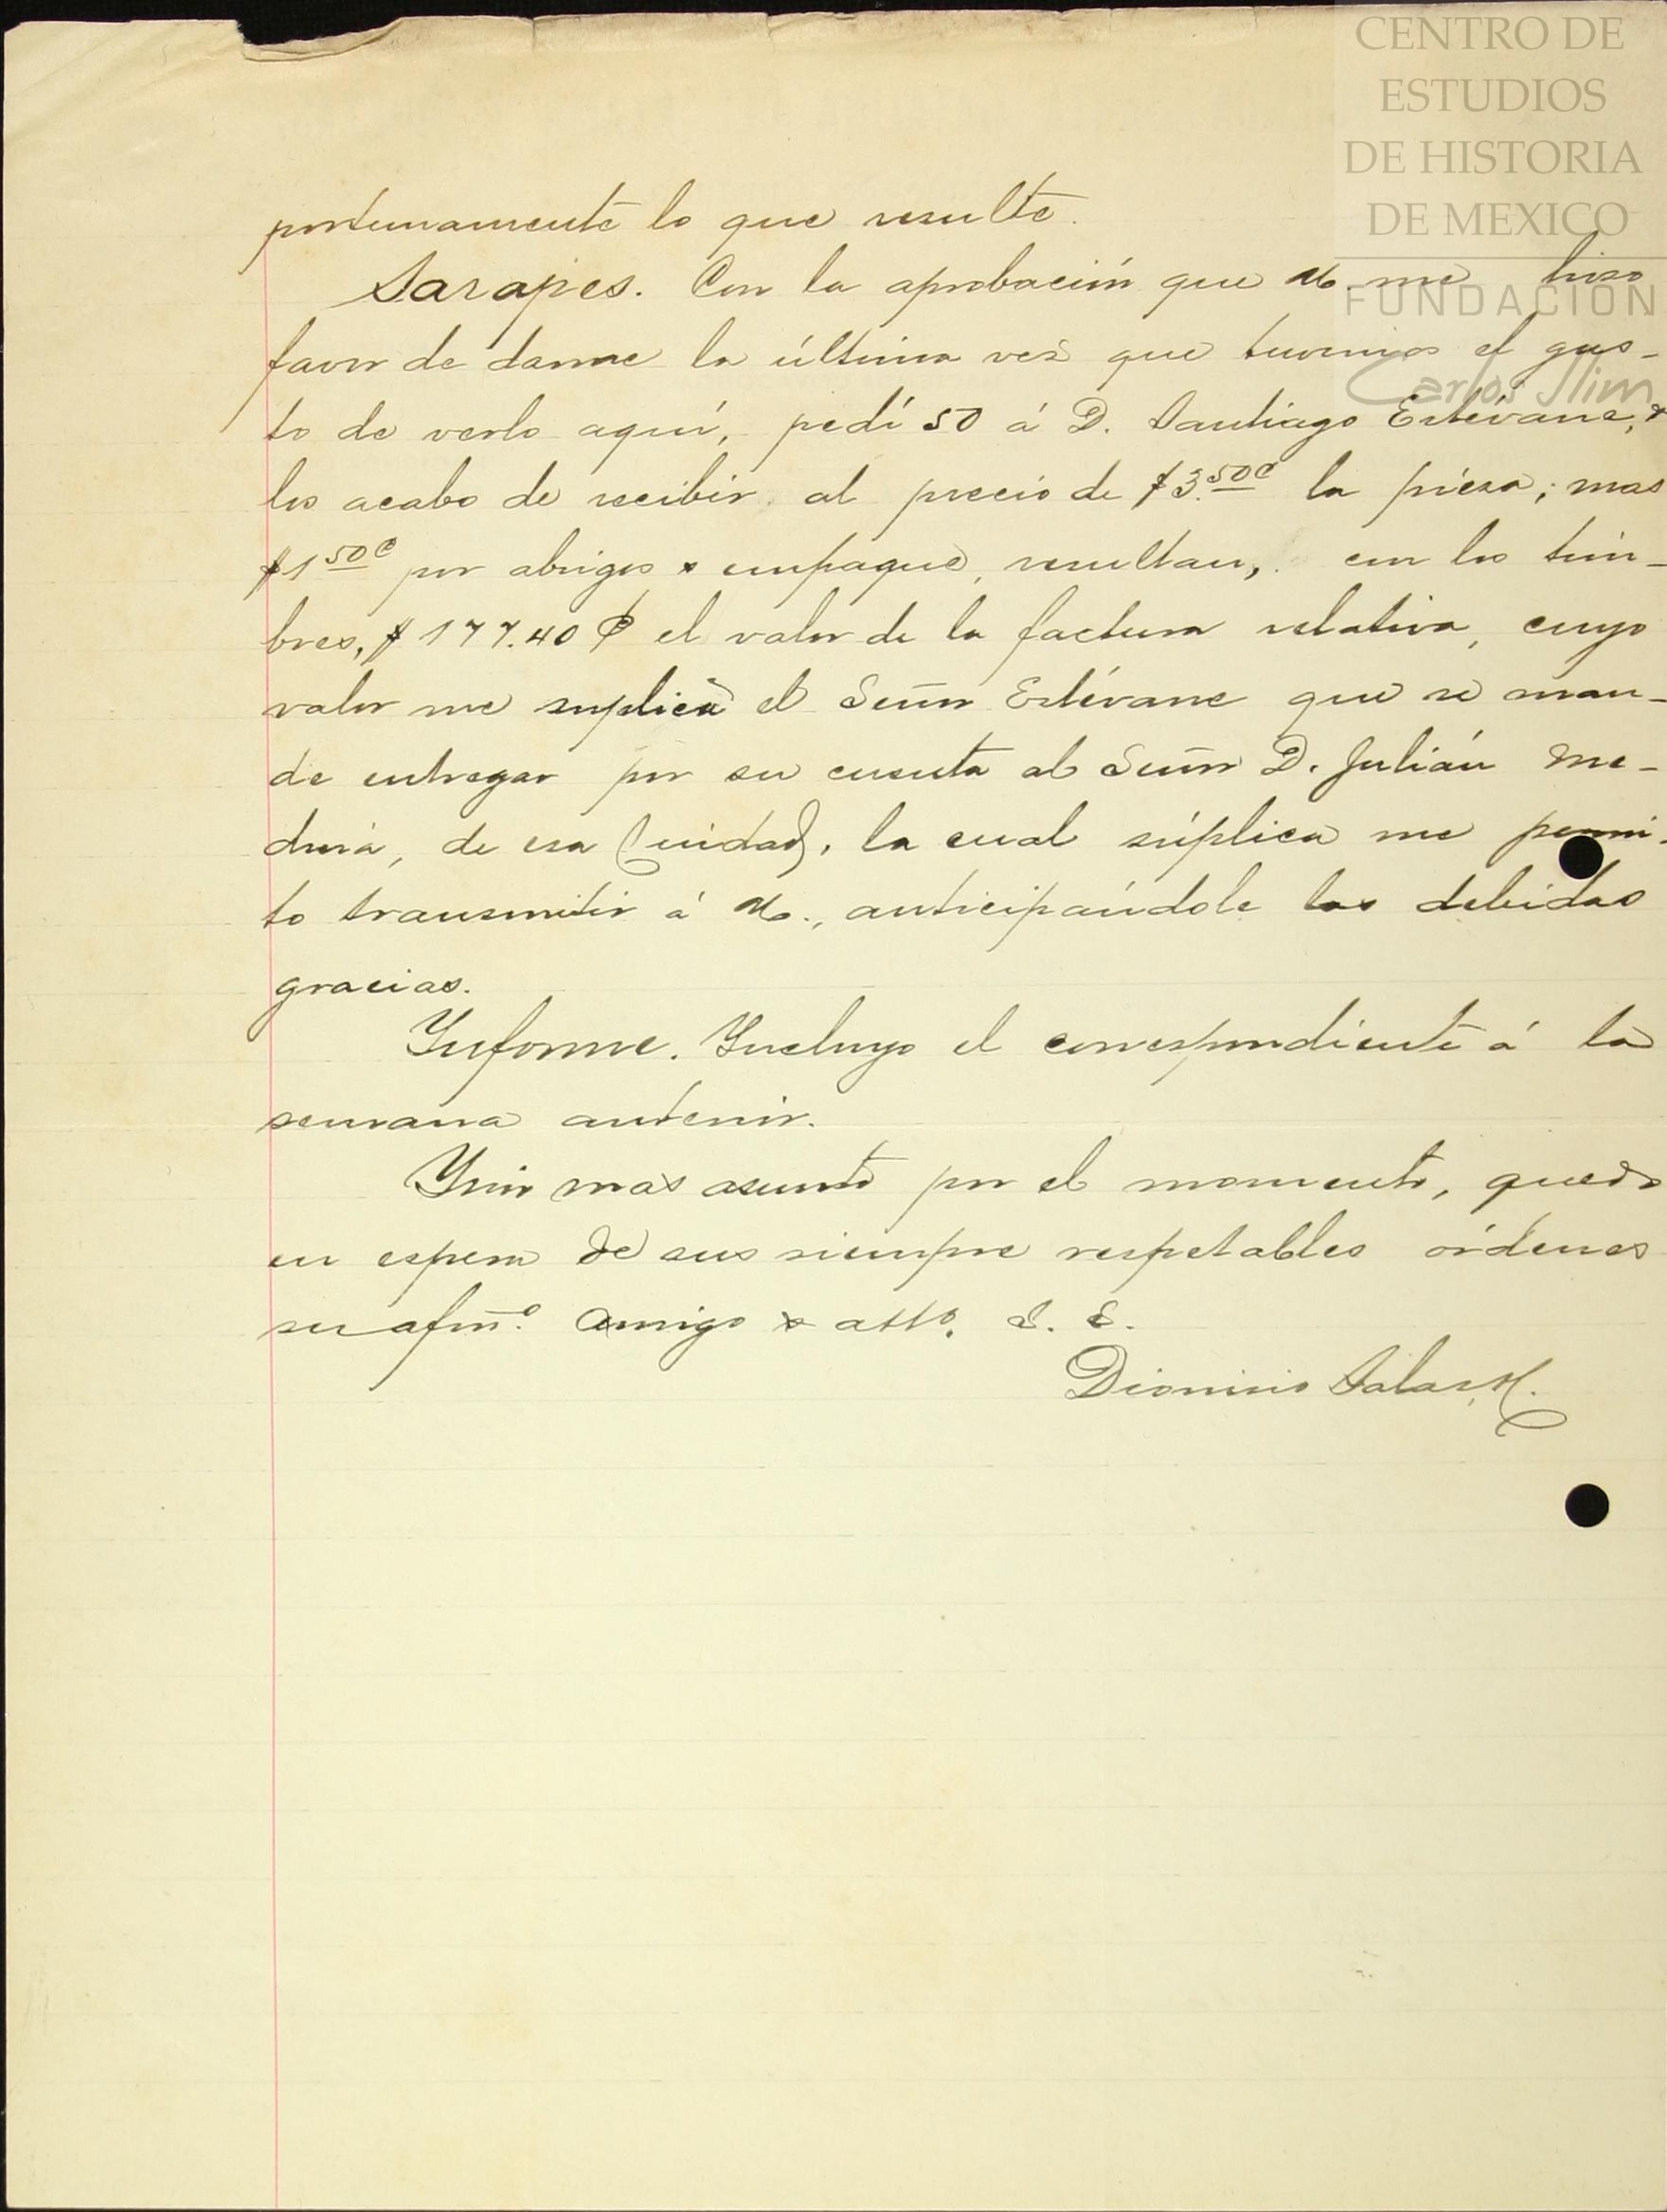 CENTRO DE
ESTUDIOS
DE HISTORIA
DE MEXICO
FUNDACIÓN
Carlos Slim
portunamente lo que resulte.
Sarapes. Con la aprobación que U. me hizo
favor de darme la última vez que tuvimos el gus-
to de verlo aquí, pedí 50 á D. Santiago Estévane, &
los acabo de recibir al precio de $3.50¢ la pieza; mas
$1 50¢ por abrigos & empaque, resultan, con los tim-
bres, $177.40 ¢ el valor de la factura relativa, cuyo
valor me suplica el Señor Estévane que se man-
de entregar por su cuenta al Señor D. Julián Me-
, de esa Ciudad, la cual súplica me permi-
to transmitir á U., anticipándole las debidas
gracias.
Ynforme. Yncluyo el correspondiente á la
semana anterior.
Y sin mas asunto por el momento, quedo
en espera de sus siempre respetables órdenes
su afmo. amigo & atto. S. S.
Dionisio Salas H.